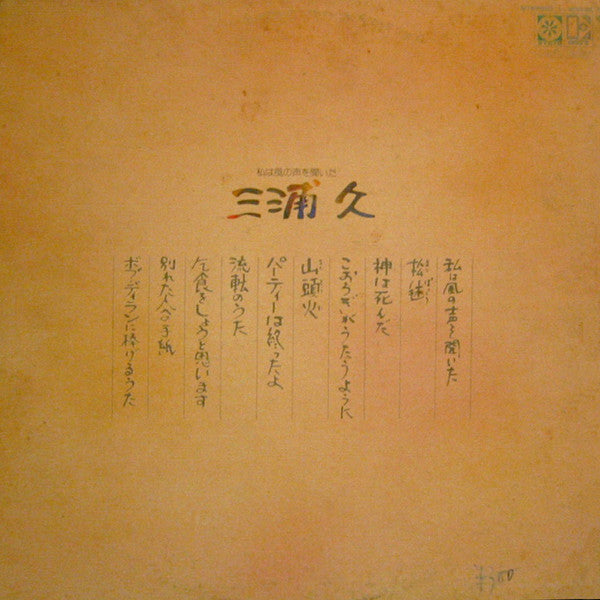 私は風の声を聞いた
三浦 久
私は風の声を聞いた
神は死んだ
こおろぎがうたうように
山頭火
パーティーは終ったよ
流転のうた
乞食をしようと思います
別れた人への手紙
ボブ・ディランに捧げるうた